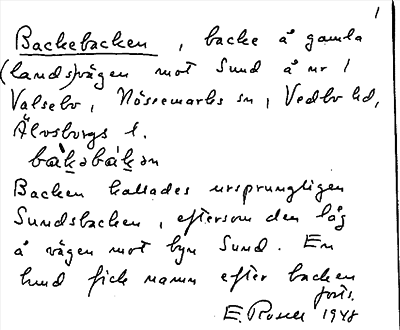 1
Backebacken, backe å gamla
(lands)vägen mot Sund å nr 1
Valsebo, Nössemarks sn, Vedbo hd,
Älvsborgs l.
bàk̲əbák̲ən
Backen kallades ursprungligen
Sundsbacken, eftersom den låg
å vägen mot byn Sund. En
hund fick namn efter backen
forts.
E. Rosell 1948